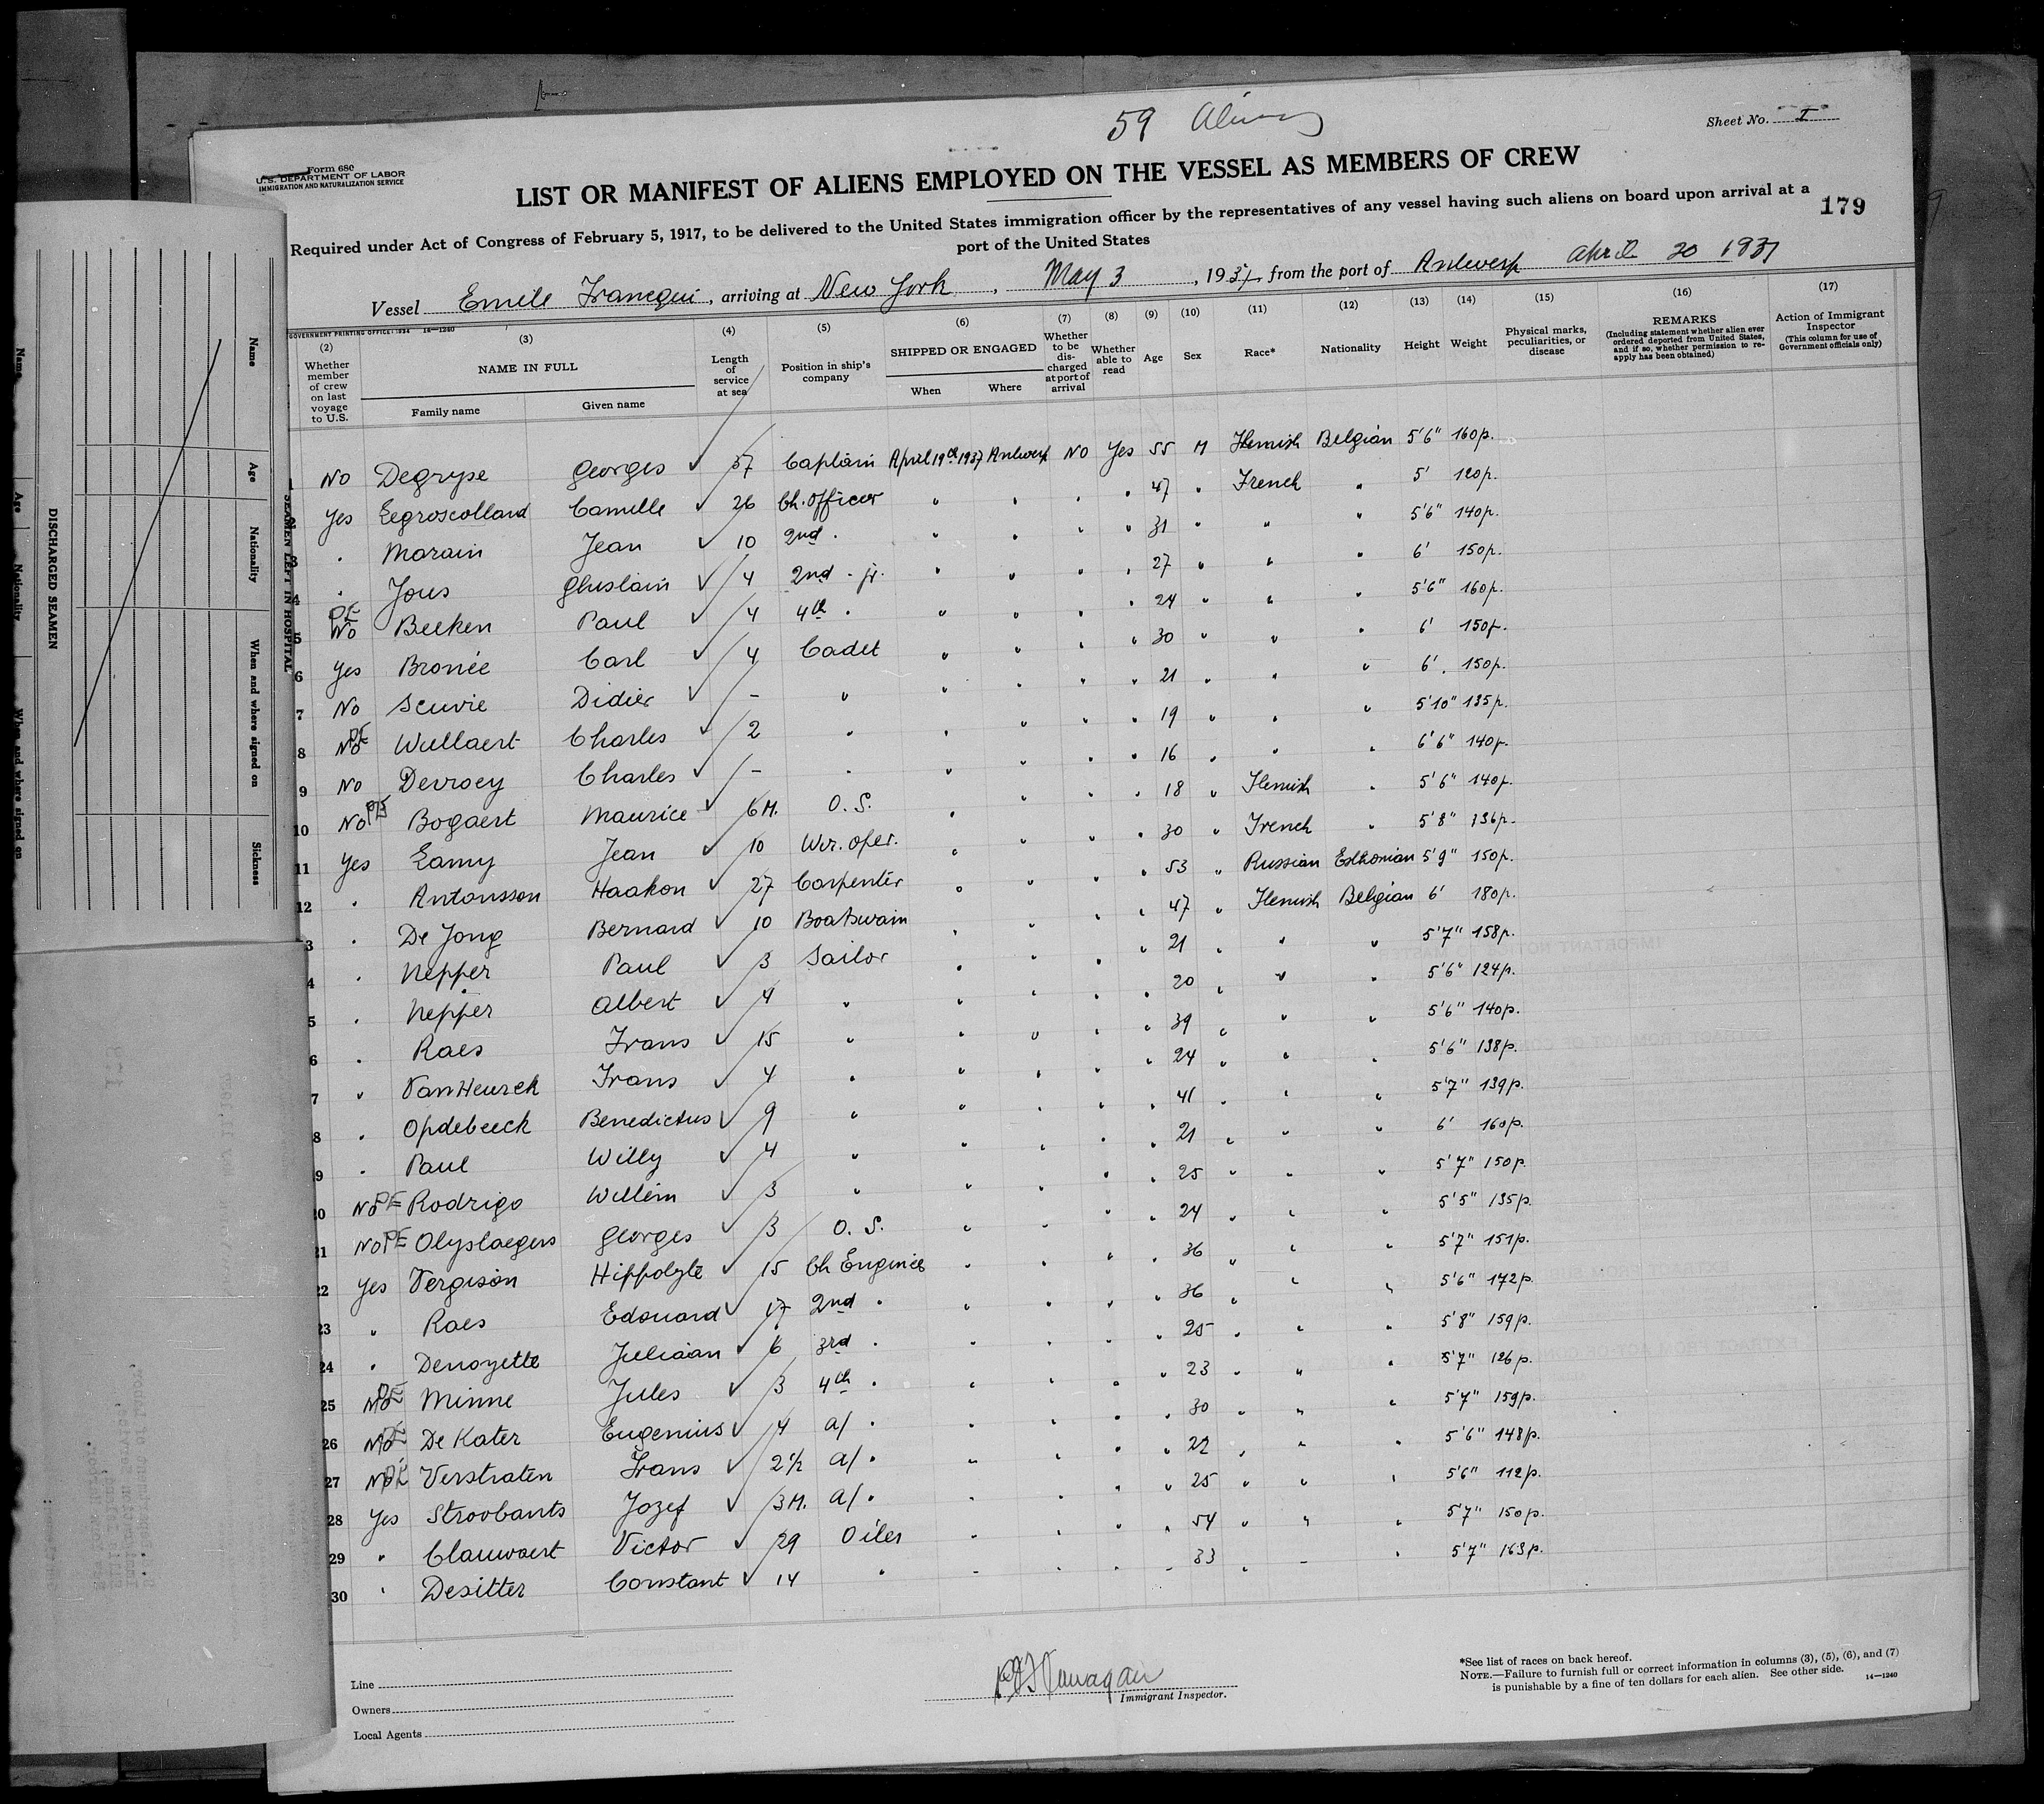 59 Aliens
Sheet No. I
Form 680
U.S. DEPARTMENT OF LABOR
IMMIGRATION AND NATURALIZATION SERVICE
LIST OR MANIFEST OF ALIENS EMPLOYED ON THE VESSEL AS MEMBERS OF CREW
Required under Act of Congress of February 5, 1917, to be delivered to the United States immigration officer by the representatives of any vessel having such aliens on board upon arrival at a
port of the United States
179
Vessel Emile Francqui, arriving at New York, May 3, 1937, from the port of Antwerp April 20 1937
GOVERNMENT PRINTING OFFICE: 1934 14—1240
(2) (3) (4) (5) (6) (7) (8) (9) (10) (11) (12) (13) (14) (15) (16) (17)
Whether member of crew on last voyage to U.S.
NAME IN FULL
Family name Given name
Length of service at sea
Position in ship's company
SHIPPED OR ENGAGED
When Where
Whether to be discharged at port of arrival
Whether able to read
Age
Sex
Race*
Nationality
Height
Weight
Physical marks, peculiarities, or disease
REMARKS
(Including statement whether alien ever ordered deported from United States, and if so, whether permission to reapply has been obtained)
Action of Immigrant Inspector
(This column for use of Government officials only)
1 No Degryse Georges ✓ 37 Captain April 19th 1937 Antwerp No Yes 55 M Flemish Belgian 5'6" 160p.
2 Yes Legroscolland Camille ✓ 26 Ch. Officer " " " " 47 " French " 5' 120p.
3 " Morain Jean ✓ 10 2nd " " " " " 31 " " " 5'6" 140p.
4 " Jous Ghislain ✓ 4 2nd " jr. " " " " 27 " " " 6' 150p.
5 PE No Beeken Paul ✓ 4 4th " " " " " 24 " " " 5'6" 160p.
6 Yes Bronée Carl ✓ 4 Cadet " " " " 30 " " " 6' 150p.
7 No Scuvie Didier ✓ - " " " " " 21 " " " 6' 150p.
8 No PE Wullaert Charles ✓ 2 " " " " " 19 " " " 5'10" 135p.
9 No Devroey Charles ✓ - " " " " " 16 " " " 6'6" 140p.
10 No PE Bogaert Maurice ✓ 6M. O. S. " " " " 18 " Flemish " 5'6" 140p.
11 Yes Lamy Jean ✓ 10 Wir. oper. " " " " 30 " French " 5'8" 136p.
12 " Antonsson Haakon ✓ 27 Carpenter " " " " 53 " Russian Esthonian 5'9" 150p.
3 " De Jong Bernard ✓ 10 Boatswain " " " " 47 " Flemish Belgian 6' 180p.
4 " Nepper Paul ✓ 3 Sailor " " " " 21 " " " 5'7" 158p.
5 " Nepper Albert ✓ 4 " " " " " 20 " " " 5'6" 124p.
6 " Raes Frans ✓ 15 " " " " " 39 " " " 5'6" 140p.
7 " Van Heurck Frans ✓ 4 " " " " " 24 " " " 5'6" 138p.
8 " Opdebeeck Benedictus ✓ 9 " " " " " 41 " " " 5'7" 139p.
9 " Paul Willy ✓ 4 " " " " " 21 " " " 6' 160p.
20 No PE Rodrigo Willem ✓ 3 " " " " " 25 " " " 5'7" 150p.
21 No PE Olyslaegers Georges ✓ 3 O. S. " " " " 24 " " " 5'5" 135p.
22 Yes Vergison Hippolyte ✓ 15 Ch Engineer " " " " 36 " " " 5'7" 151p.
23 " Raes Edouard ✓ 17 2nd " " " " " 36 " " " 5'6" 172p.
24 " Denoyette Juliaan ✓ 6 3rd " " " " " 25 " " " 5'8" 159p.
25 No PE Minne Jules ✓ 3 4th " " " " " 23 " " " 5'7" 126p.
26 No PE De Kater Eugenius ✓ 4 a/ " " " " " 30 " " " 5'7" 159p.
27 No PE Verstraten Frans ✓ 2½ a/ " " " " " 22 " " " 5'6" 148p.
28 Yes Stroobants Jozef ✓ 3M. a/ " " " " " 25 " " " 5'6" 112p.
29 " Clauwaert Victor ✓ 29 Oiler " " " " 54 " " " 5'7" 150p.
30 " Desitter Constant ✓ 14 " " " " " 33 " " " 5'7" 163p.
Line
Owners
Local Agents
Immigrant Inspector.
*See list of races on back hereof.
NOTE.—Failure to furnish full or correct information in columns (3), (5), (6), and (7)
is punishable by a fine of ten dollars for each alien. See other side. 14—1240
SEAMEN LEFT IN HOSPITAL
Name Age Nationality When and where signed on Sickness
DISCHARGED SEAMEN
Name Age Nationality When and where signed on